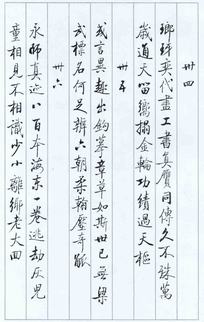 卅四
瑯琊奕代盡工書真贗同傳久不誅萬
歲通天留嚮搨金輪功績過天樞
卅五
或言異趣出鉤摹章草如斯世已無梁
武標名何足辨六朝柔翰壓奇觚
卅六
永師真迹八百本海東一卷逃劫灰兒
童相見不相識少小離鄉老大回